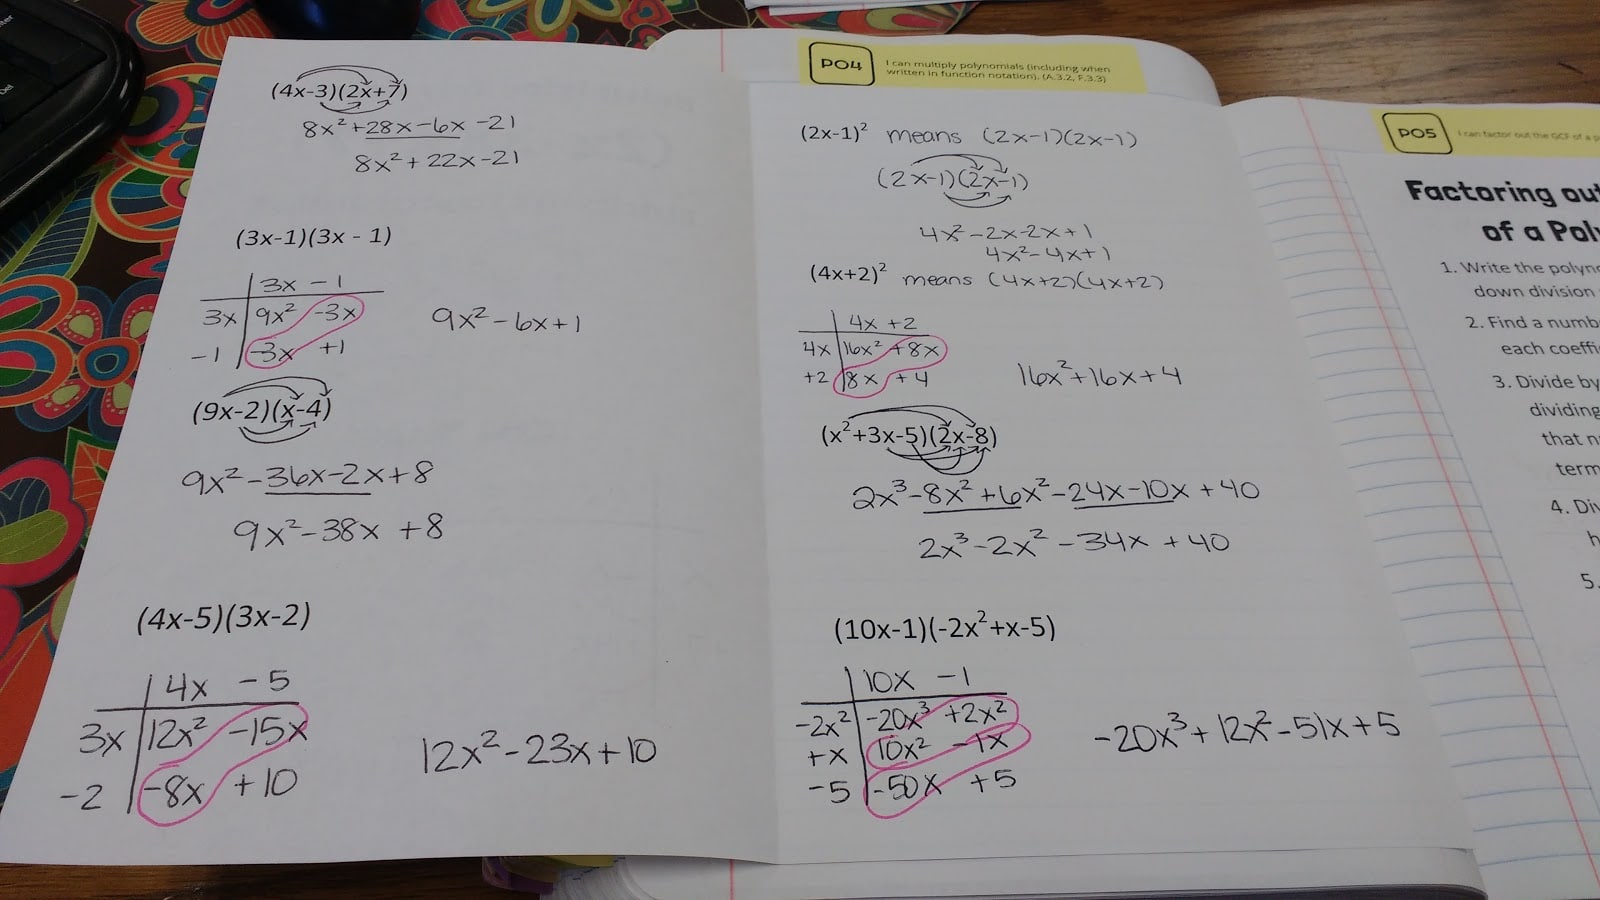 (4x-3)(2x+7)
8x²+28x-6x-21
8x²+22x-21
(3x-1)(3x - 1)
3x -1
3x 9x² -3x
-1 -3x +1
9x²-6x+1
(9x-2)(x-4)
9x²-36x-2x+8
9x²-38x +8
(4x-5)(3x-2)
4x -5
3x 12x² -15x
-2 -8x +10
12x²-23x+10
PO4
I can multiply polynomials (including when
written in function notation). (A.3.2, F.3.3)
(2x-1)² means (2x-1)(2x-1)
(2x-1)(2x-1)
4x²-2x-2x+1
4x²-4x+1
(4x+2)² means (4x+2)(4x+2)
4x +2
4x 16x² +8x
+2 8x +4
16x²+16x+4
(x²+3x-5)(2x-8)
2x³-8x²+6x²-24x-10x+40
2x³-2x²-34x+40
(10x-1)(-2x²+x-5)
10x -1
-2x² -20x³ +2x²
+x 10x² -1x
-5 -50x +5
-20x³+12x²-51x+5
PO5
I can factor out the GCF of a p
Factoring ou
of a Pol
1. Write the polyn
down division
2. Find a numb
each coeffi
3. Divide by
dividing
that n
term
4. Di
h
5.
Del